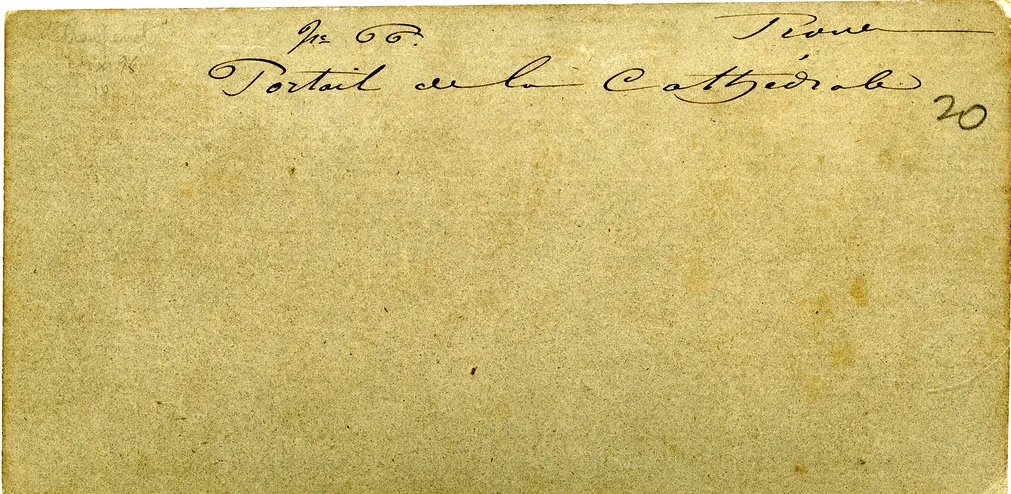 № 66. Rouen
Portail de la Cathédrale
20